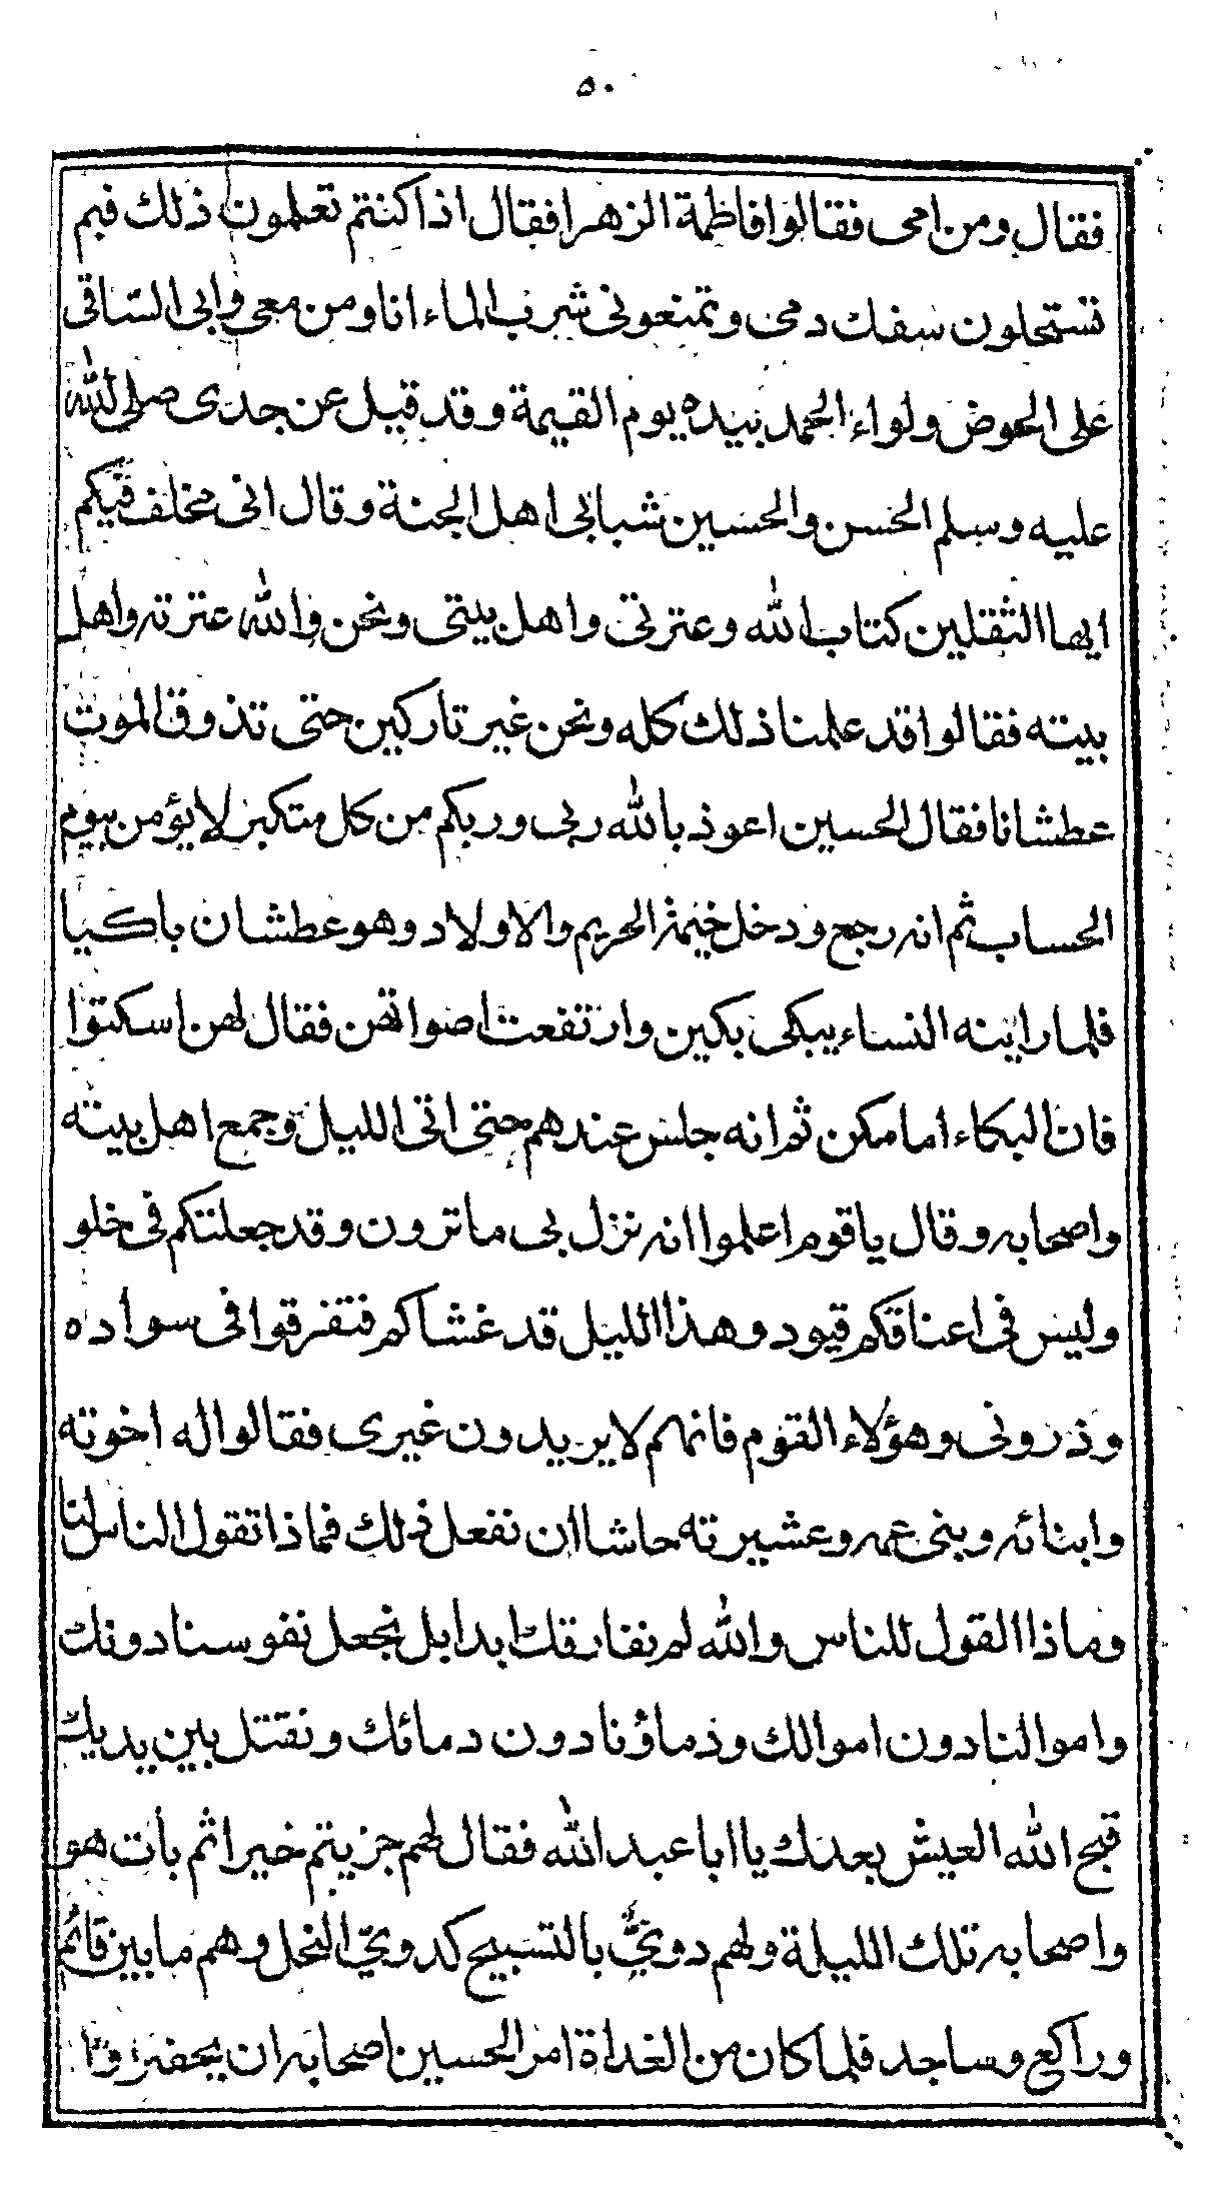 ٥٠
فقال ومن امى فقالوا فاطمة الزهرا فقال اذا كنتم تعلمون ذلك فبم
تستحلون سفك دمى وتمنعونى شرب الماء انا ومن معى وابى الساقى
على الحوض ولواء الحمد بيده يوم القيمة وقد قيل عن جدى صلى الله
عليه وسلم الحسن والحسين شبابى اهل الجنة وقال انى مخلف فيكم
ايها الثقلين كتاب الله وعترتى واهل بيتى ونحن والله عترته واهل
بيته فقالوا قد علمنا ذلك كله ونحن غير تاركين حتى تذوق الموت
عطشانا فقال الحسين اعوذ بالله ربى وربكم من كل متكبر لا يؤمن بيوم
الحساب ثم انه رجع ودخل خيمة الحريم والاولاد وهو عطشان باكيا
فلما راينه النساء يبكى بكين وارتفعت اصواتهن فقال لهن اسكتوا
فان البكاء امامكن ثم انه جلس عندهم حتى اتى الليل وجمع اهل بيته
واصحابه وقال يا قوم اعلموا انه نزل بى ما ترون وقد جعلتكم فى خلو
وليس فى اعناقكم قيود وهذا الليل قد غشاكم فتفرقوا فى سواده
وذرونى وهؤلاء القوم فانهم لا يريدون غيرى فقالوا له اخوته
وابنائه وبنى عمه وعشيرته حاشا ان نفعل ذلك فماذا تقول الناس لنا
وماذا القول للناس والله لم نفارقك ابدا بل نجعل نفوسنا دونك
واموالنا دون اموالك ودماؤنا دون دمائك ونقتل بين يديك
قبح الله العيش بعدك يا ابا عبد الله فقال لهم جزيتم خيرا ثم بات هو
واصحابه تلك الليلة ولهم دوىٌّ بالتسبيح كدوىّ النحل وهم ما بين قائم
وراكع وساجد فلما كان من الغداة امر الحسين اصحابه ان يحفروا